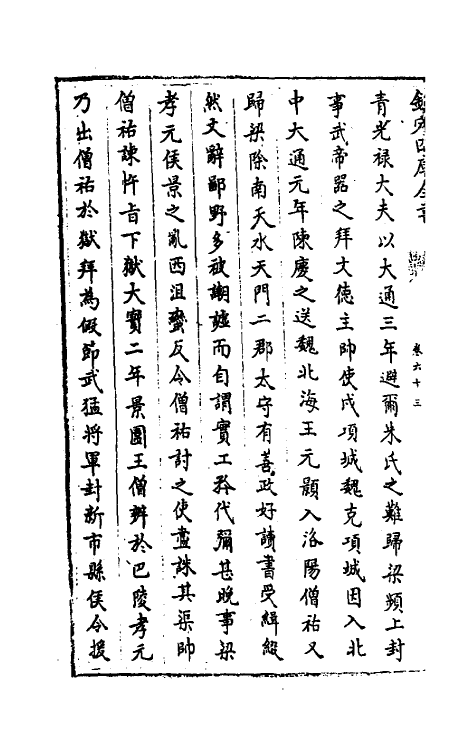 欽定四庫全書 卷六十三
青光禄大夫以大通三年避爾朱氏之難歸梁頻上封
事武帝器之拜文德主帥使戍項城魏克項城因入北
中大通元年陳慶之送魏北海王元顥入洛陽僧祐又
歸梁除南天水天門二郡太守有善政好讀書受緝綴
然文辭鄙野多被謿謔而自謂實工矜伐彌甚晚事梁
孝元侯景之亂西沮蠻反令僧祐討之使盡誅其渠帥
僧祐諫忤旨下獄大寳二年景圍王僧辨於巴陵孝元
乃出僧祐於獄拜為假節武猛將軍封新市縣侯令援